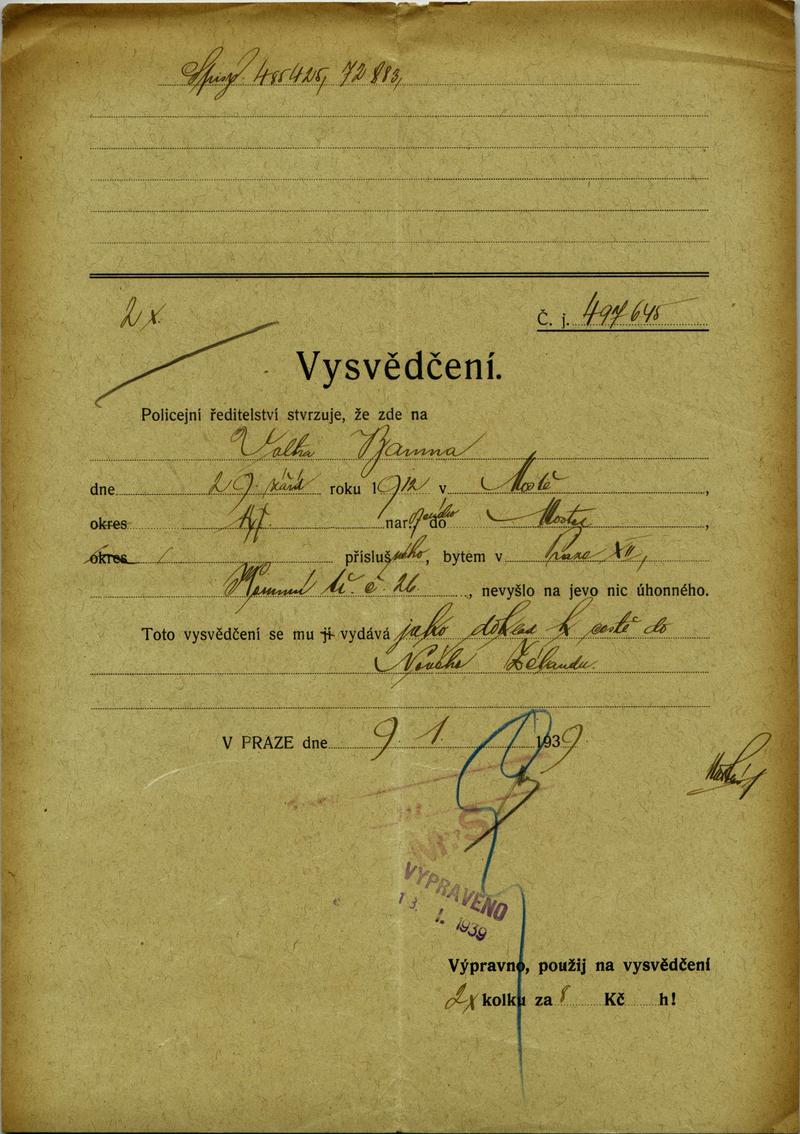 485425, 72883,
2x
Č. j. 497645
Vysvědčení.
Policejní ředitelství stvrzuje, že zde na
dne 29. září roku 1912 v Mostě,
okres nar. do Mostu,
okres přísluš ného, bytem v Praze XII,
tř. č. 26, nevyšlo na jevo nic úhonného.
Toto vysvědčení se mu ji vydává jako doklad k cestě do
Nového Zélandu.
V PRAZE dne 9. 1. 1939
M.S
VYPRAVENO
13. 1. 1939
Výpravno, použij na vysvědčení
2x kolku za 8 Kč h!